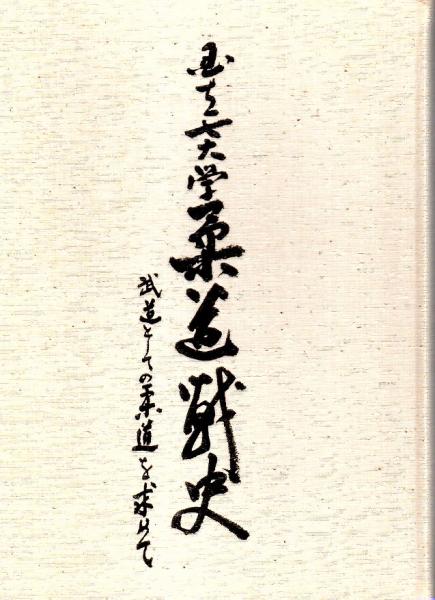 国立七大学柔道戦史
武道としての柔道を求めて